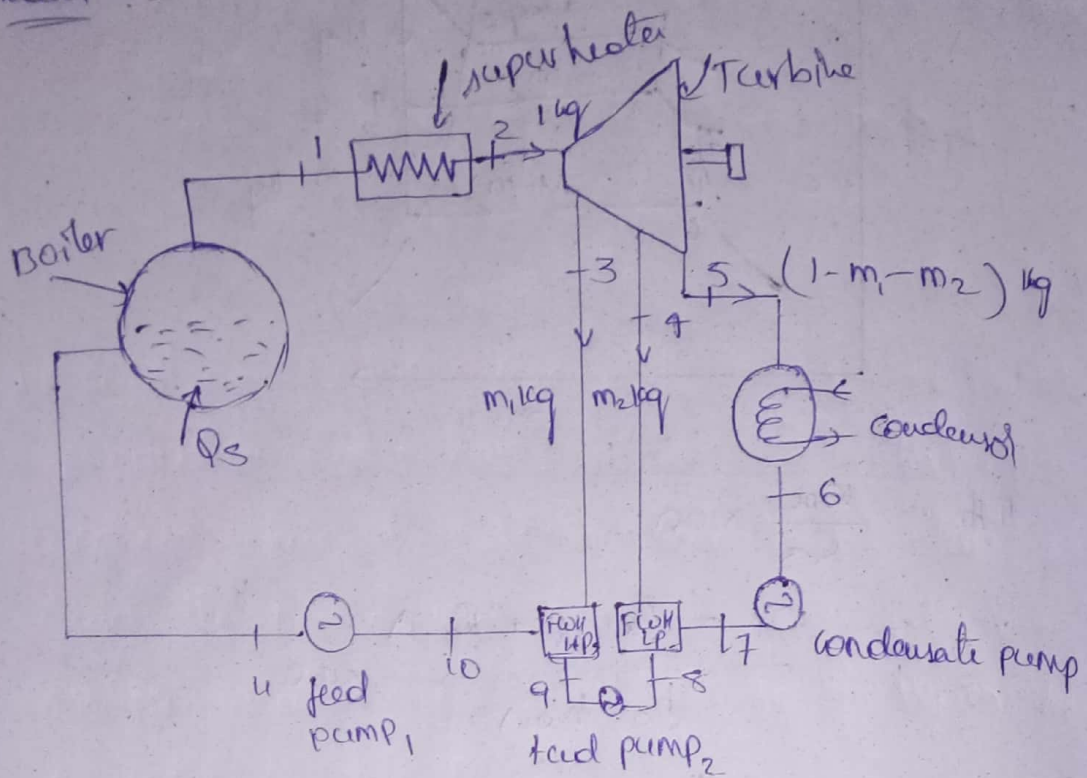 superheater
Turbine
1
2
1kg
Boiler
3
5
(1-m₁-m₂) kg
4
m₁kg
m₂kg
condensor
Qs
6
FWH
HP
FWH
LP
7
condensate pump
4
10
9
8
feed
pump₁
feed pump₂